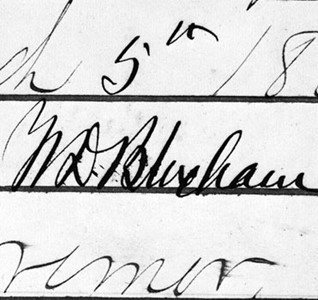 ch 5th 18
W.D. Bloxham
vernor